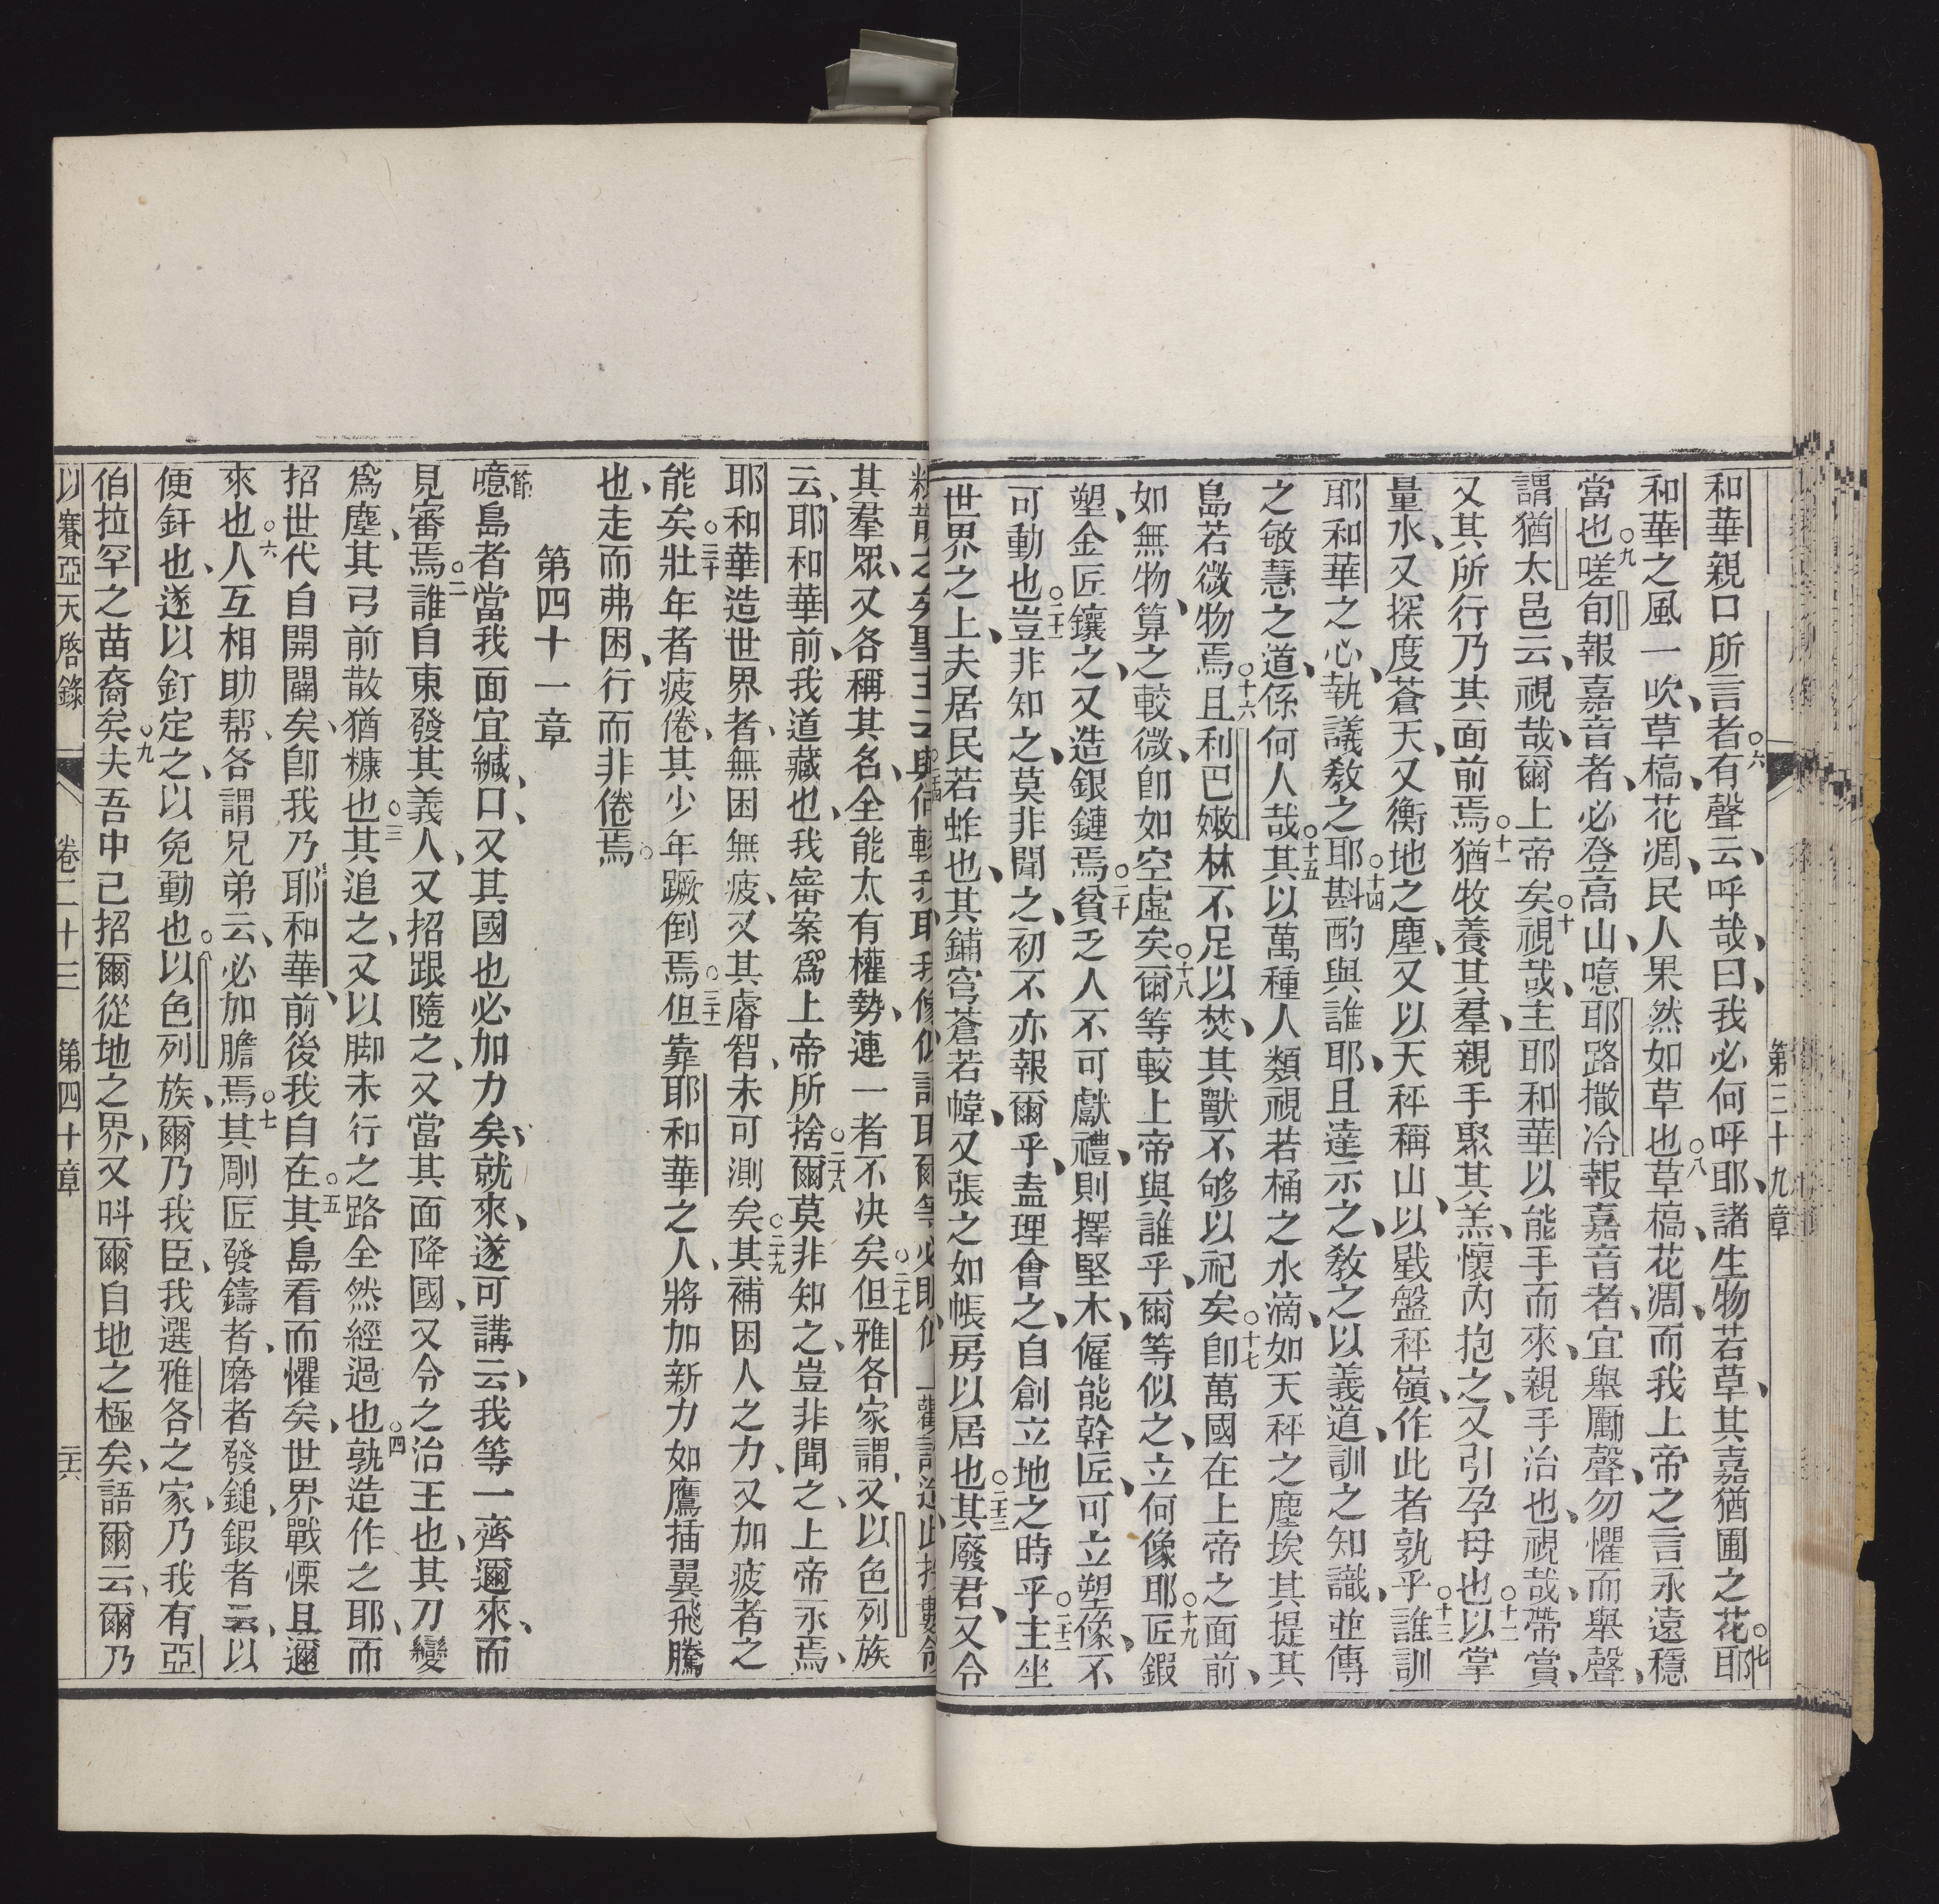 第三十九章
和華親口所言者○六有聲云、呼哉、曰、我必何呼耶、諸生物若草、其嘉猶圃之花○七耶
和華之風一吹、草槁、花凋、民人果然如草也○八草槁、花凋、而我上帝之言永遠穩
當也○九嗟旬報嘉音者、必登高山、噫耶路撒冷報嘉音者、宜舉勵聲、勿懼而舉聲、
謂猶太邑云、視哉、爾上帝矣○十視哉、主耶和華以能手而來、親手治也、視哉、帶賞、
又其所行乃其面前焉○十一猶牧養其羣、親手聚其羔、懷內抱之、又引孕母也○十二以掌
量水、又探度蒼天、又衡地之塵、又以天秤稱山、以戥盤秤嶺、作此者孰乎○十三誰訓
耶和華之心、執議教之耶○十四斟酌與誰耶、且達示之、教之以義道、訓之知識、並傳
之敏慧之道、係何人哉○十五其以萬種人類視若桶之水滴、如天秤之塵埃、其提其
島若微物焉○十六且利巴嫩林不足以焚、其獸不够以祀矣○十七卽萬國在上帝之面前、
如無物、算之較微、卽如空虛矣○十八爾等較上帝與誰乎、爾等似之、立何像耶○十九匠鍜
塑、金匠鑲之、又造銀鏈焉○二十貧乏人不可獻禮、則擇堅木、僱能幹匠、可立塑像、不
可動也○二十一豈非知之、莫非聞之、初不亦報爾乎、盍理會之、自創立地之時乎○二十二主坐
世界之上、夫居民若蚱也、其鋪穹蒼若幃、又張之如帳房以居也○二十三其廢君、又令
其羣眾、又各稱其名、全能太有權勢、連一者不决矣○二十七但雅各家謂、又以色列族
云、耶和華前、我道藏也、我審案爲上帝所捨○二十八爾莫非知之、豈非聞之、上帝永焉、
耶和華造世界者、無困無疲、又其睿智、未可測矣○二十九其補困人之力、又加疲者之
能矣○三十壯年者疲倦、其少年蹶倒焉○三十一但靠耶和華之人、將加新力、如鷹插翼飛騰
也、走而弗困、行而非倦焉○
第四十一章
一節噫島者、當我面宜緘口、又其國也必加力矣、就來、遂可講云、我等一齊邇來、而
見審焉○二誰自東發其義人、又招跟隨之、又當其面降國、又令之治王也、其刀變
爲塵、其弓前散猶糠也○三其追之、又以脚未行之路全然經過也○四孰造作之耶、而
招世代自開闢矣、卽我乃耶和華、前後我自在○五其島看而懼矣、世界戰慄且邇
來也○六人互相助帮、各謂兄弟云、必加膽焉○七其剛匠發鑄者、磨者發鎚鍜者云、以
便釬也、遂以釘定之、以免動也○以色列族、爾乃我臣、我選雅各之家、乃我有亞
伯拉罕之苗裔矣○九夫吾中己招爾從地之界、又呌爾自地之極矣、語爾云、爾乃
以賽亞天啓錄 卷二十三 第四十章 二十六